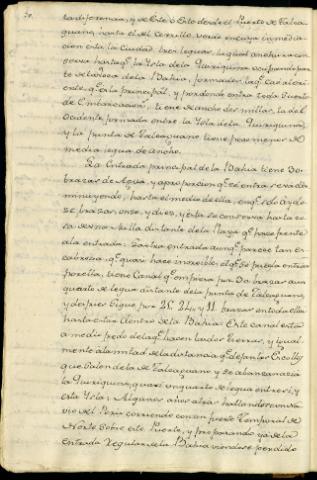 la disponian, y de Este à Oeste desde el Puerto de Talca
guano, hasta el del Cerrillo verde en cuya inmedia
cion está la Ciudad tres leguas, la qual anchura con
serva hasta qe. la Ysla de la Quiriquina ocupando par
te de la voca de la Bahia, forma dos, la qe. cae al ori
ente, qe. es la principal, y por donde entra toda suerte
de Embarcacion, tiene de ancho dos millas, la del
Occidente formada entre la Ysla de la Quiriquina
y la punta de Talcaguano, tiene poco menos de
media legua de ancho.
La Entrada principal de la Bahia tiene 30
brazas de Agua, y a proporcion qe. se entra se va dis
minuyendo, hasta el medio de ella,
se brazas once, y diez, y esta se conserva hasta ce
ca de una milla distante de la Playa qe. hace frente
a la entrada. La otra entrada aunqe. parece tan es
cabrosa qe. quasi hace increible, el qe. se pueda entrar
por ella, tiene Canal qe. empieza por 30 brazas a un
quarto de legua distante de la punta de Talcaguano,
y despues sigue por 25, 24, y 11 brazas en toda ella
hasta estar dentro de la Bahia: Este canal está
a medio freo de la qe. hacen las dos tierras, y igual
mente a la mitad de la distancia qe. dejan los Escollos
que salen de la de Talcaguano y se abanzan acia
la Quiriquina, quasi un quarto de legua entre si, y
esta Ysla: Algunos años atras hallandose un Na
vio del Perù corriendo con un fuerte Temporal de
Norte sobre este Puerto, y propasando ya de la
entrada regular de la Bahia viendose perdido